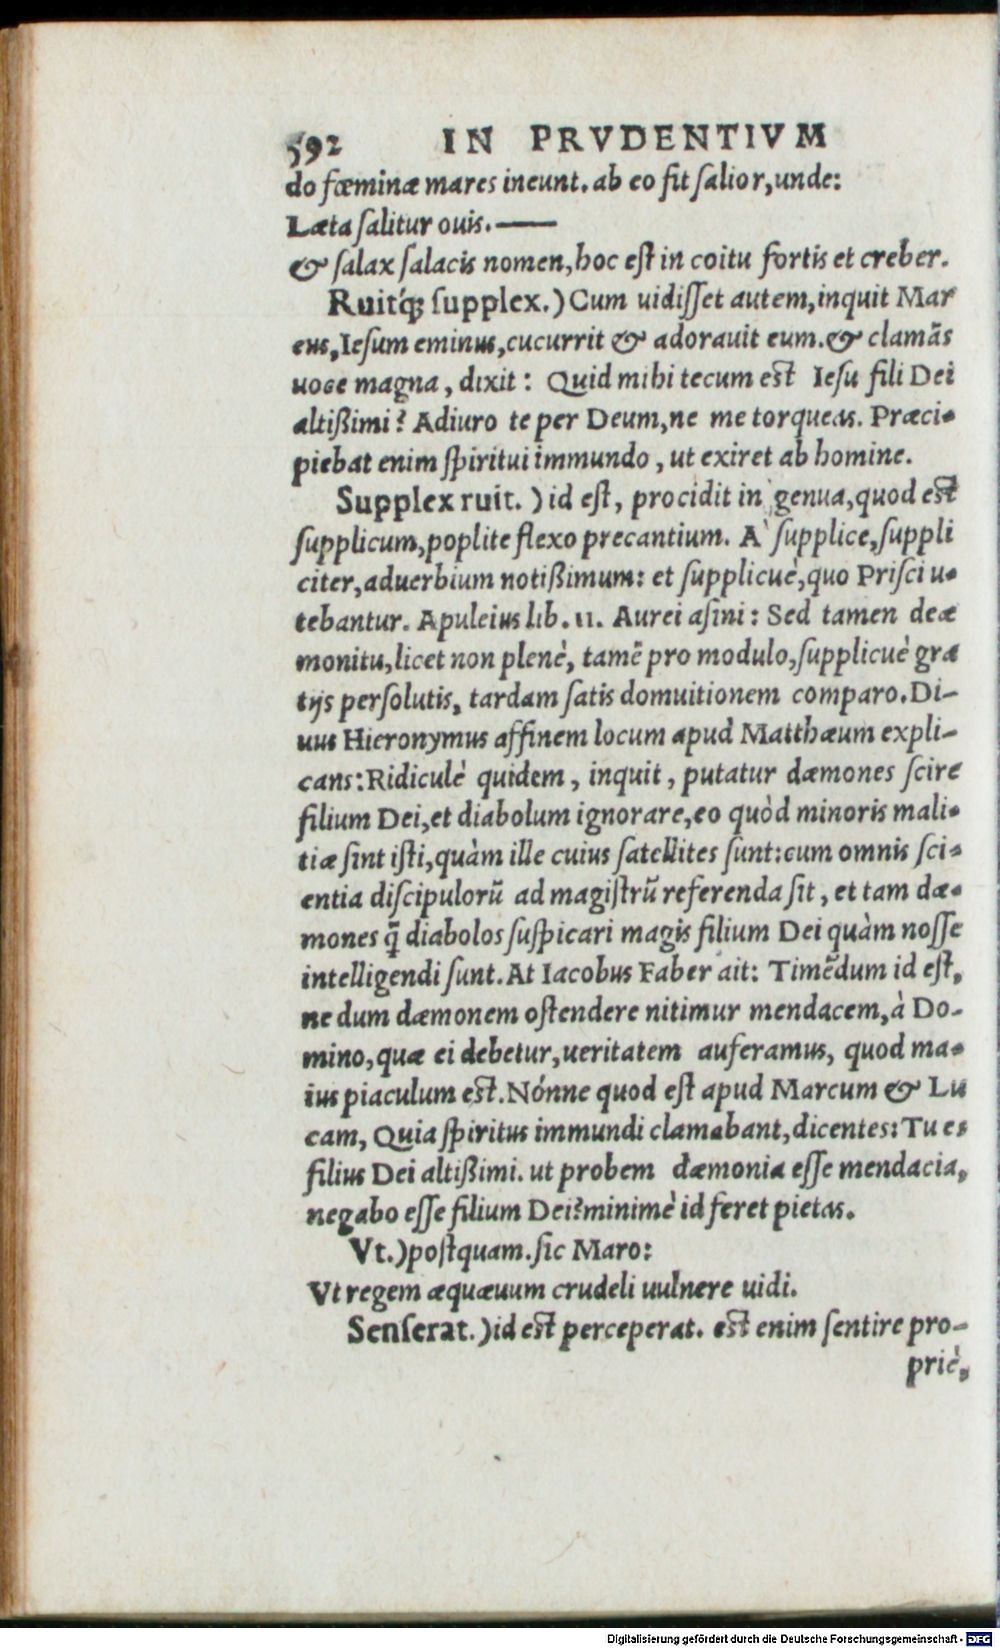 592 IN PRVDENTIVM
do fœminæ mares ineunt. ab eo fit ſalior, unde:
Læta ſalitur ouis. ——
& ſalax ſalacis nomen, hoc eſt in coitu fortis et creber.
Ruitq́ꝫ ſupplex.) Cum uidiſſet autem, inquit Mar
cus, Ieſum eminus, cucurrit & adorauit eum. & clamãs
uoce magna, dixit: Quid mihi tecum eſt Ieſu fili Dei
altißimi? Adiuro te per Deum, ne me torqueas. Præci-
piebat enim ſpiritui immundo, ut exiret ab homine.
Supplex ruit.) id eſt, procidit in genua, quod eſt
ſupplicum, poplite flexo precantium. A` ſupplice, ſuppli
citer, aduerbium notißimum: et ſupplicuè, quo Priſci u-
tebantur. Apuleius lib. 11. Aurei aſini: Sed tamen deæ
monitu, licet non plenè, tamẽ pro modulo, ſupplicuè gra
tijs perſolutis, tardam ſatis domuitionem comparo. Di-
uus Hieronymus affinem locum apud Matthæum expli-
cans: Ridiculè quidem, inquit, putatur dæmones ſcire
filium Dei, et diabolum ignorare, eo quòd minoris mali-
tiæ ſint iſti, quàm ille cuius ſatellites ſunt: cum omnis ſci-
entia diſcipulorũ ad magiſtrũ referenda ſit, et tam dæ-
mones q̃ diabolos ſuſpicari magis filium Dei quàm noſſe
intelligendi ſunt. At Iacobus Faber ait: Timẽdum id eſt,
ne dum dæmonem oſtendere nitimur mendacem, à Do-
mino, quæ ei debetur, ueritatem auferamus, quod ma-
ius piaculum eſt. Nónne quod eſt apud Marcum & Lu
cam, Quia ſpiritus immundi clamabant, dicentes: Tu es
filius Dei altißimi. ut probem dæmonia eſſe mendacia,
negabo eſſe filium Dei? minimè id feret pietas.
Vt.) poſtquam. ſic Maro:
Vt regem æquæuum crudeli uulnere uidi.
Senſerat.) id eſt perceperat. eſt enim ſentire pro-
priè,
Digitalisierung gefördert durch die Deutsche Forschungsgemeinschaft - DFG